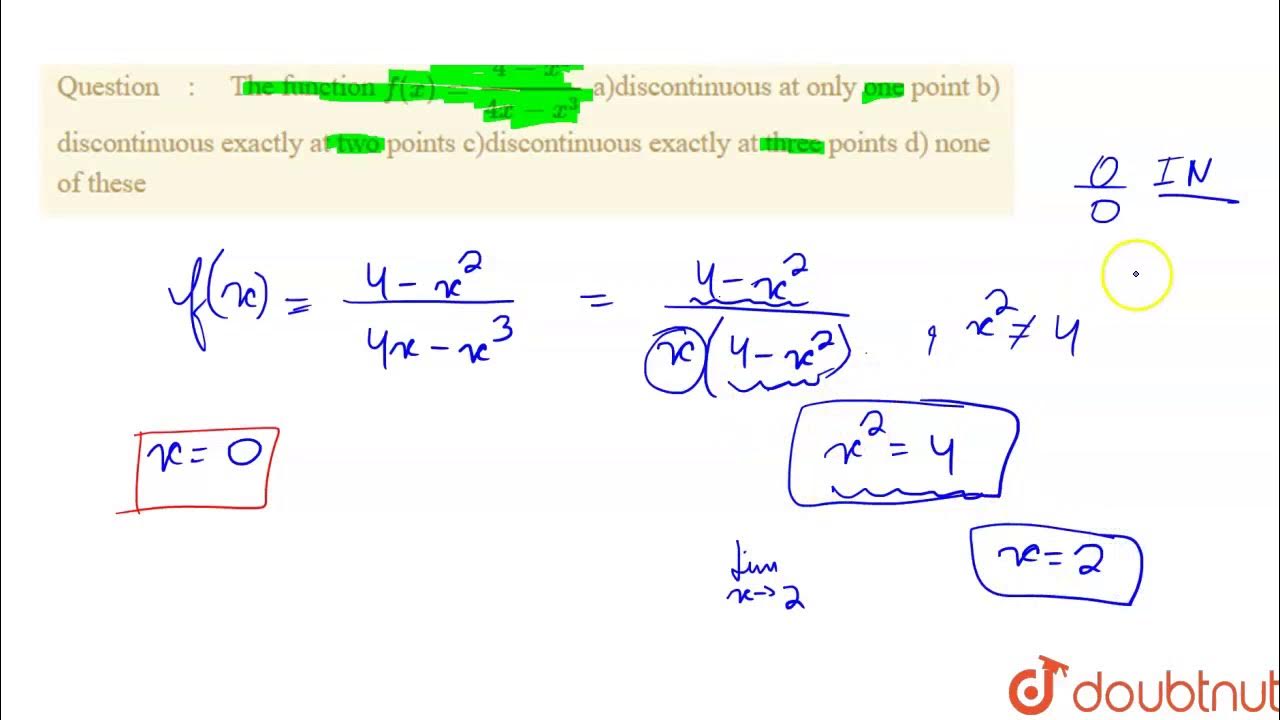 Question : The function f(x) = 4 − x² / 4x − x³ a)discontinuous at only one point b)
discontinuous exactly at two points c)discontinuous exactly at three points d) none
of these
0/0 IN
f(x) = 4 − x² / 4x − x³ = 4 − x² / x(4 − x²) , x² ≠ 4
x = 0
x² = 4
x = 2
lim x→2
doubtnut